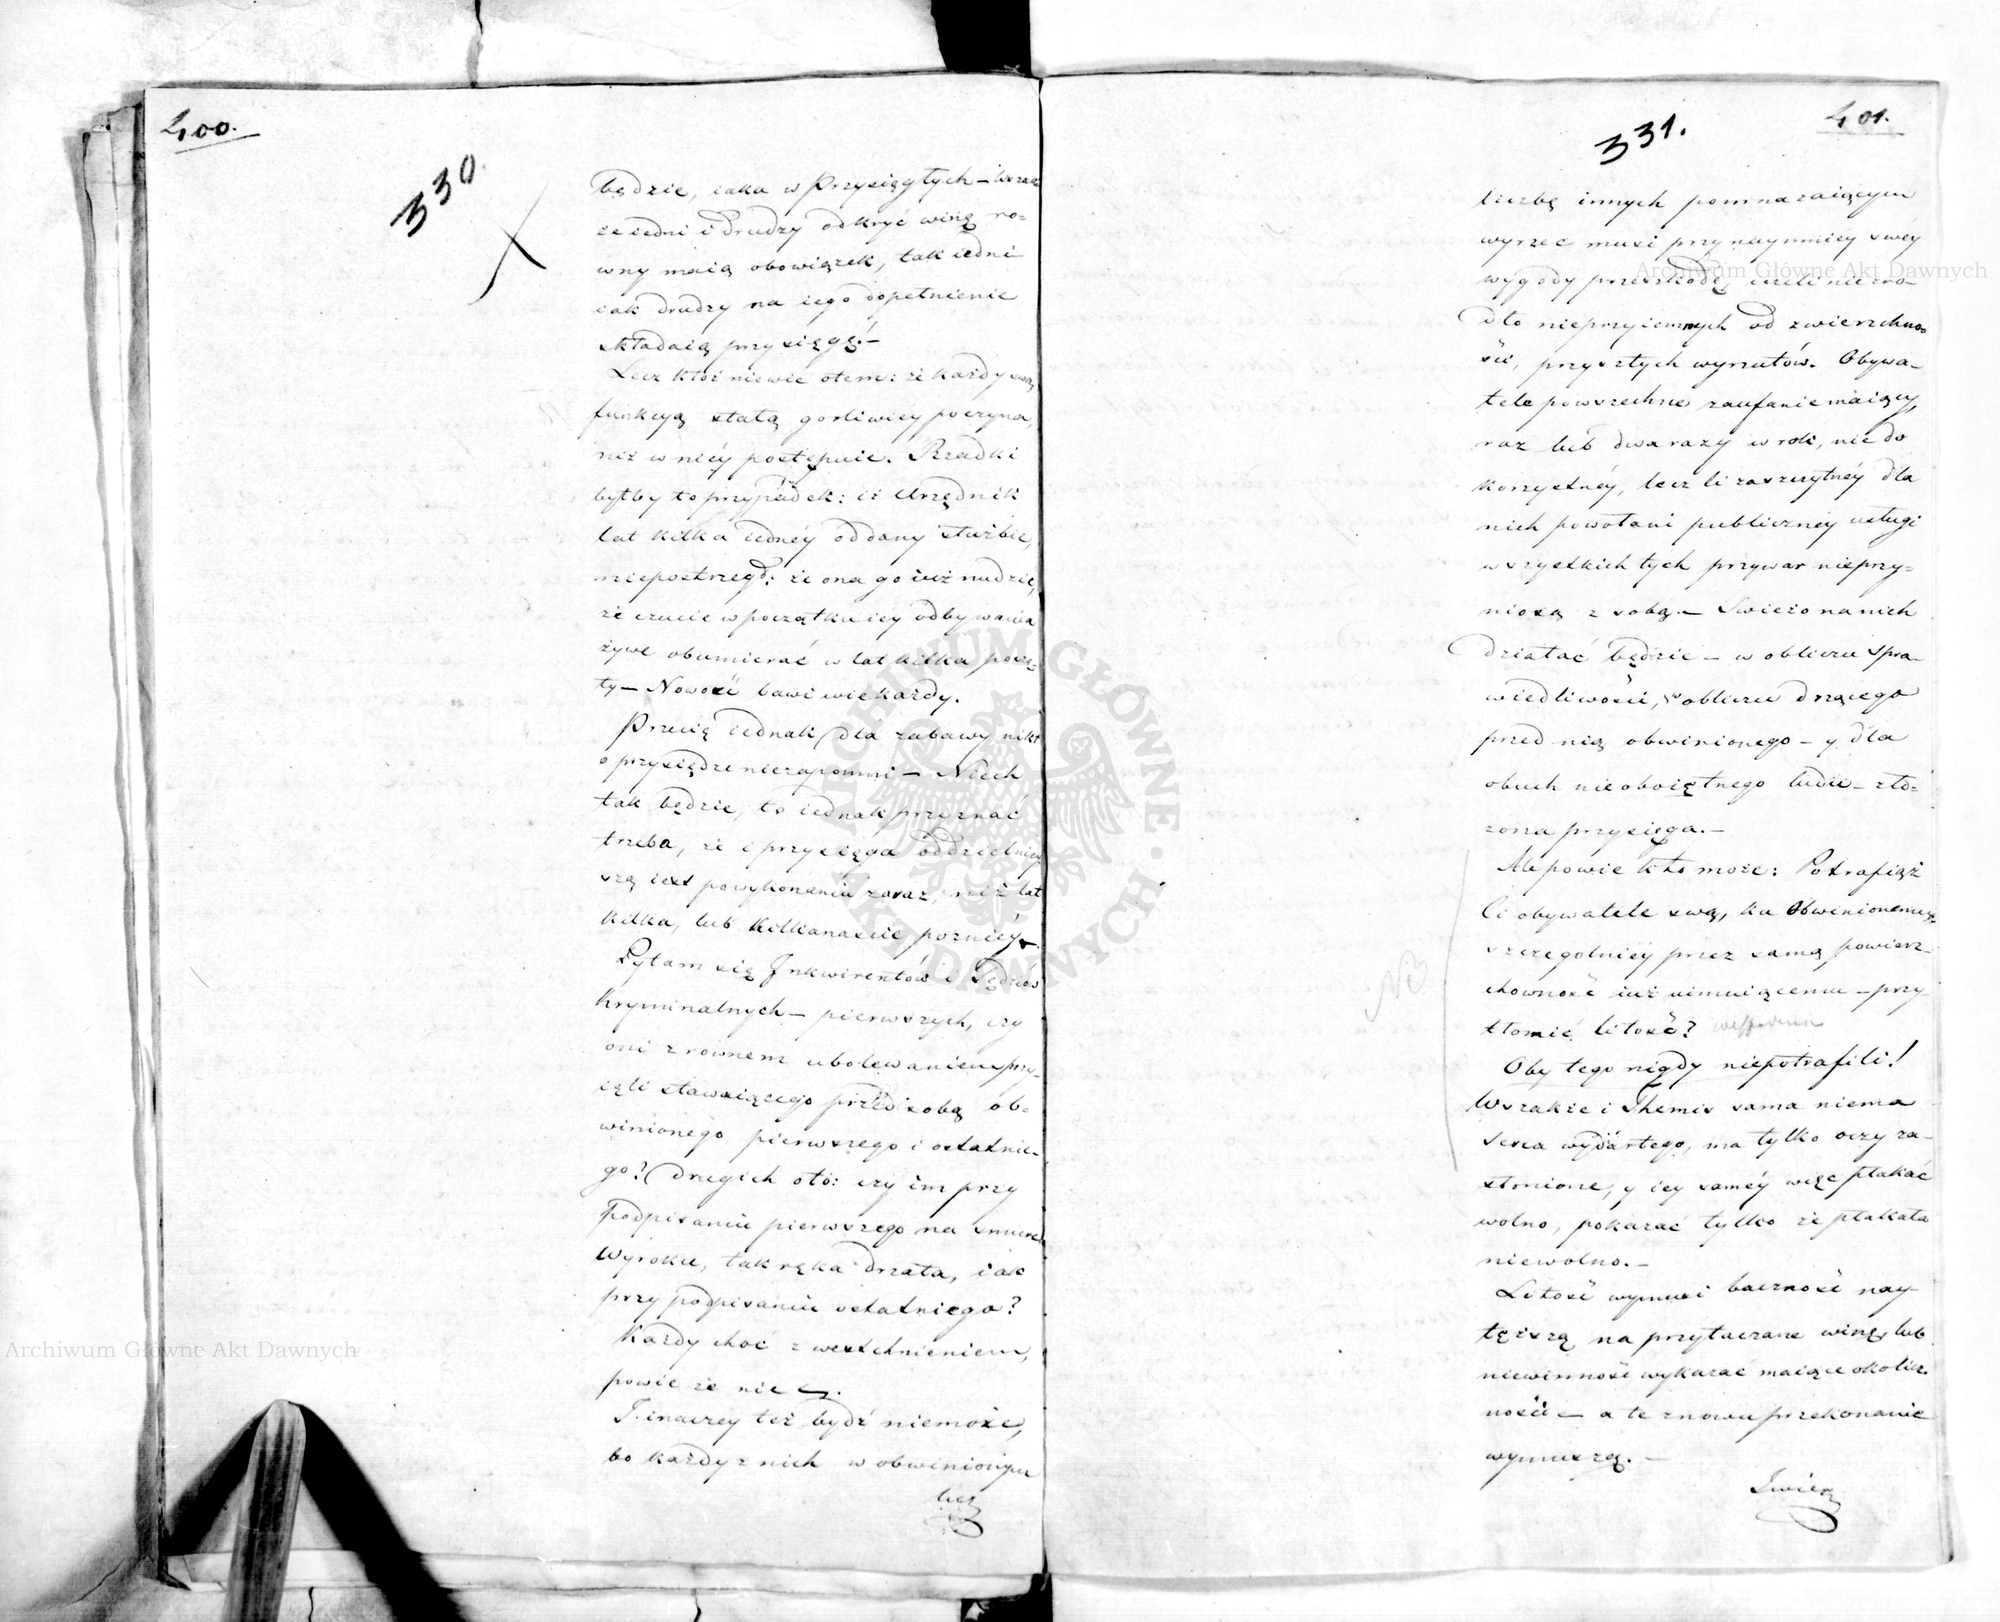 400.
330.
będzie, iaka w Przysięgłych – wszak
że iedni i drudzy odkryć winę ro=
wny maią obowiązek, tak iedni
iak drudzy na iego dopełnienie
składaią przysięgę. –
Lecz któż niewie otem: że każdy swą
funkcyą stałą gorliwiey poczyna,
niż w niéy postępuie. Rzadki
byłby to przypadek: iż Urzędnik
lat kilka iednéy oddany służbie,
niepostrzegł: że ona go iuż nudzi,
że czucie w początku iey odbywania
żywe obumierać w lat kilka poczę-
ty – Nowość bawi wiekażdy.
Przecię iednak dla zabawy nikt
o przysiędze niezapomni – Niech
tak będzie, to iednak przyznać
trzeba, że i przysięga oddzielniey
szą iest powykonaniu zaraz, niż lat
kilka, lub kilkanaście pozniéy –
Pytam się Inkwirentów i Sędziów
Kryminalnych – pierwszych, czy
oni z rownem ubolewaniem przy-
ięli stawaiącego przed sobą ob-
winionego pierwszego i ostatnie-
go? Drugich oto: czy im przy
podpisaniu pierwszego na smierć
Wyroku, tak ręka drzała, iak
przy podpisaniu ostatniego?
Każdy choć z westchnieniem,
powie że nie.
I inaczey też bydź niemoże,
bo każdy z nich w obwinionym
liczb
401.
331.
liczbę innych pomnażaiącym
wyrzec musi przynaymniéy swéy
wygody przeszkodę, ieżeli nie zro-
dło nieprzyiemnych od zwierzchno-
ści, przyszłych wyrzutów. Obywa-
tele powszechne zaufanie maiący,
raz lub dwa razy w roku, nie do
korzystnéy, lecz li zaszczytnéy dla
nich powołani publicznéy usługi
wszystkich tych przywar nieprzy-
niosą z sobą. – Swieżo na nich
działać będzie – w obliczu spra-
wiedliwości, w obliczu drzącego
przed nią obwinionego – y dla
obuch nieoboiętnego ludu – zło-
żona przysięga. –
Ale powie kto może: Potrafiąż
Ci obywatele swą, ku Obwinionemu
szczególniéy przez samą powierz-
chowność iuż uimuiącemu – przy-
tłomić litość?
NB
Oby tego nigdy niepotrafili!
Wszakże i Themis sama niema
serca wydartego, ma tylko oczy za-
słonione, y iey saméy więc płakać
wolno, pokazać tylko że płakała
niewolno. –
Litość wymusi baczność nay-
tęższą na przytaczane winę, lub
niewinność wykazać maiące okolicz-
ności – a te znowu przekonanie
wymuszą. –